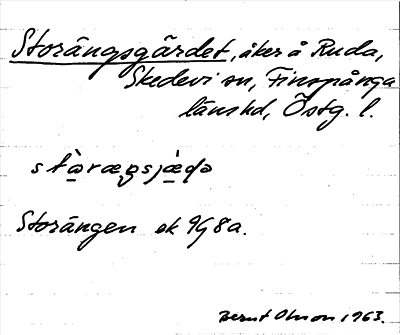 Storängsgärdet, åker å Ruda,
Skedevi sn, Finspånga
länskd, Östg. l.
Storängen ek 9G8a.
Bernt Olsson 1963.